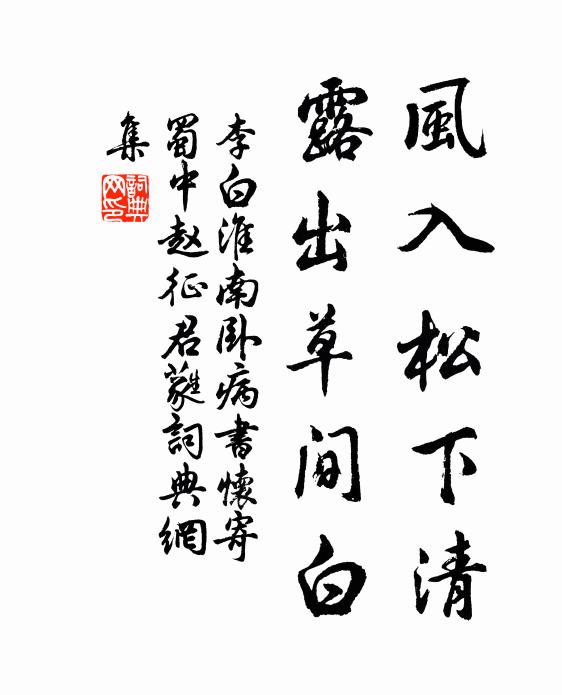 風入松下清
露出草間白
李白淮南卧病書懷寄
蜀中赵征君蕤詞典網
集
詞典
网印